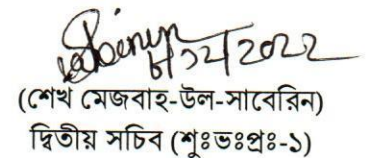 ৮/১২/২০২২
(শেখ মেজবাহ-উল-সাবেরিন)
দ্বিতীয় সচিব (শুঃভঃপ্রঃ-১)